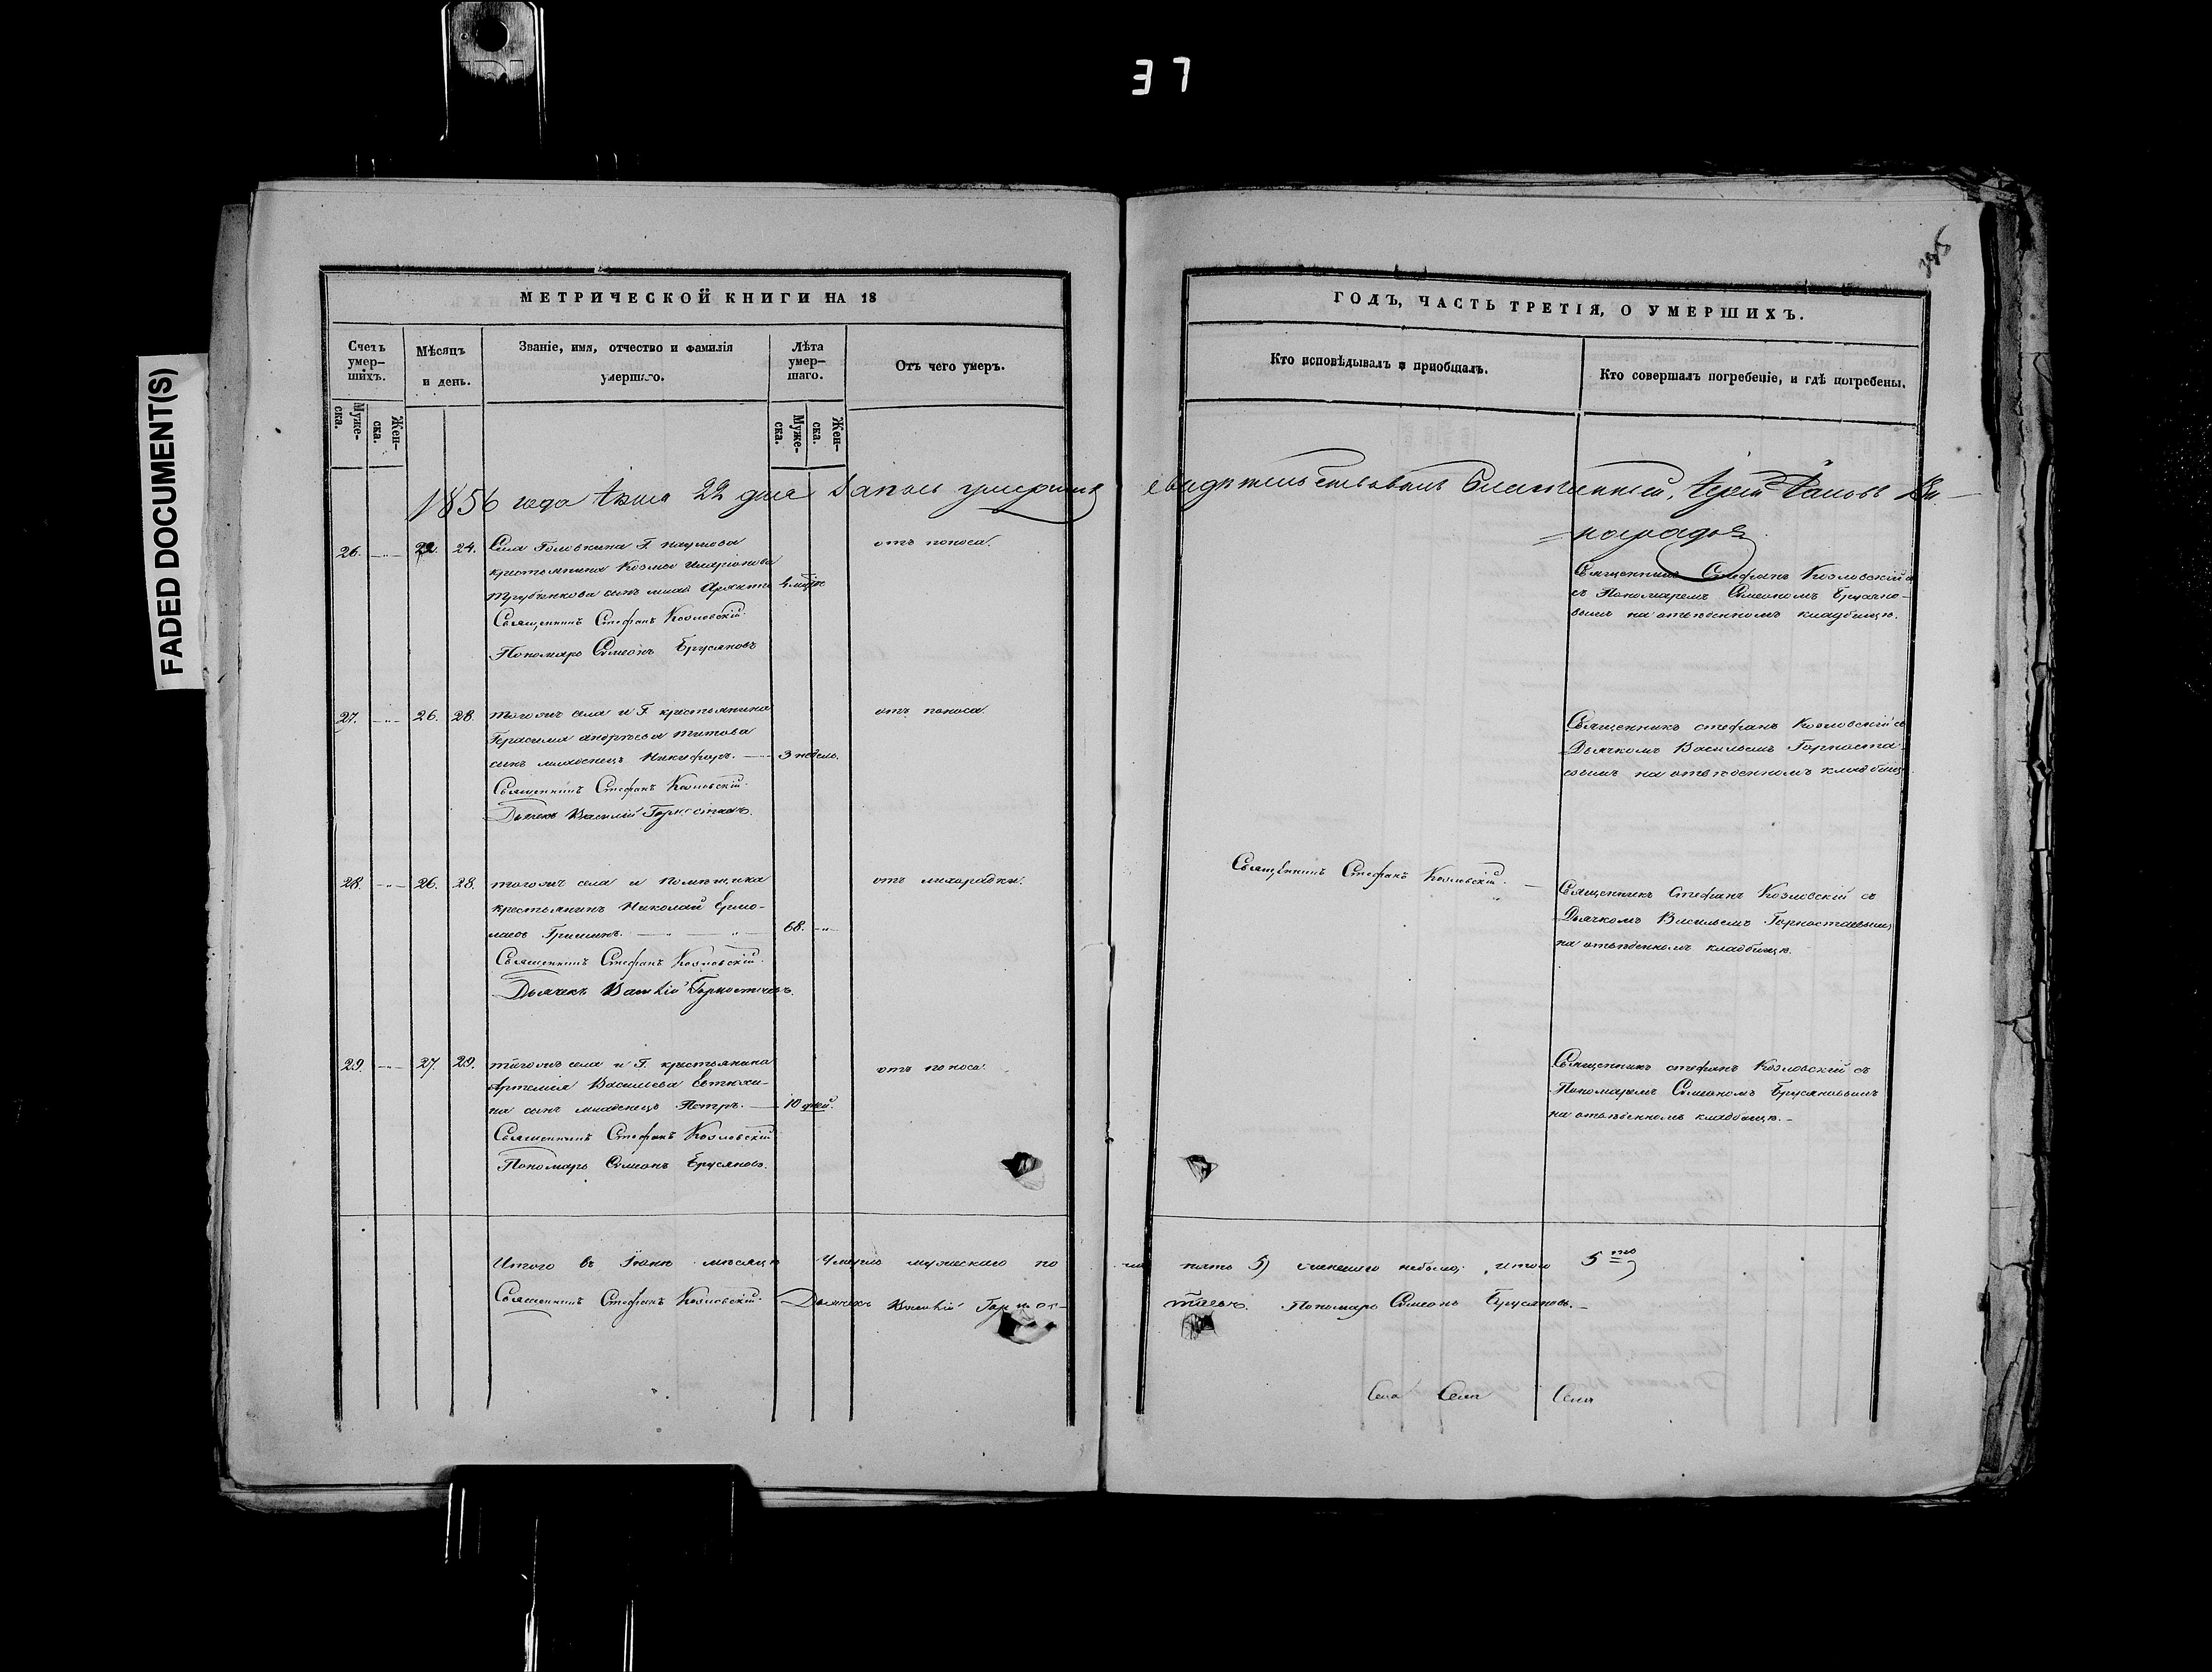 37
FADED DOCUMENT(S)
МЕТРИЧЕСКОЙ КНИГИ НА 18
ГОДЪ, ЧАСТЬ ТРЕТІЯ, О УМЕРШИХЪ.
Счетъ умер-шихъ.
Муже-ска.
Жен-ска.
Мѣсяцъ и день.
Званіе, имя, отчество и фамилія умершаго.
Лѣта умер-шаго.
Муже-ска.
Жен-ска.
Отъ чего умеръ.
Кто исповѣдывалъ и приобщалъ.
Кто совершалъ погребеніе, и гдѣ погребены.
1856 года 22 дня умершихъ свидѣтельствовалъ Благочинный, Іерей Ви-
ноградовъ
26. 22. 24. Села Головкина Г. Наумова
крестьянина Козмы Иларіонова
сынъ
Священникъ Стефанъ Козловскій.
Пономарь Симеонъ Брусяновъ
отъ поноса.
Священникъ Стефанъ Козловскій
съ Пономаремъ Симеономъ Брусяно-
вымъ на отведенномъ кладбищѣ.
27. 26. 28. тогожъ села и Г. крестьянина
Герасима Андрѣева Титова
сынъ младенецъ Никифоръ. 3 недель.
Священникъ Стефанъ Козловскій.
Дьячекъ Василій Горностаевъ.
отъ поноса.
Священникъ Стефанъ Козловскій съ
Дьячкомъ Васильемъ Горноста-
евымъ на отведенномъ кладбищѣ
28. 26. 28. тогожъ села и помѣщика
крестьянинъ Николай Ермо-
лаевъ Гришинъ. 68.
Священникъ Стефанъ Козловскій.
Дьячекъ Василій Горностаевъ.
отъ лихорадки.
Священникъ Стефанъ Козловскій.
Священникъ Стефанъ Козловскій съ
Дьячкомъ Васильемъ Горностаевымъ
на отведенномъ кладбищѣ.
29. 27. 29. тогожъ села и Г. крестьянина
Артемія Васильева Евтюхи-
на сынъ младенецъ Петръ. 10 дней.
Священникъ Стефанъ Козловскій
Пономарь Симеонъ Брусяновъ.
отъ поноса.
Священникъ Стефанъ Козловскій съ
Пономаремъ Симеономъ Брусяновымъ
на отведенномъ кладбищѣ.
Итого въ Іюнѣ мѣсяцѣ умерло мужескаго по- ла пять 5) женскаго небыло; итого 5
Священникъ Стефанъ Козловскій. Дьячекъ Василій Горнос-
таевъ. Пономарь Симеонъ Брусяновъ.
Села Села Села